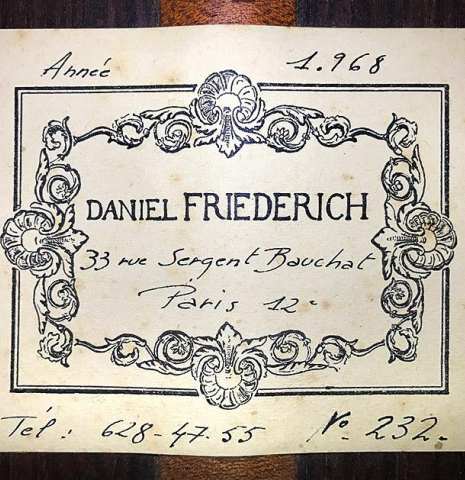 Année 1.968
DANIEL FRIEDERICH
33 rue Sergent Bauchat
Paris 12e
Tél : 628-47.55 No. 232.